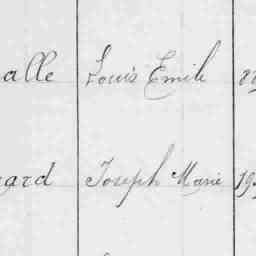 alle Louis Emile
ard Joseph Marie